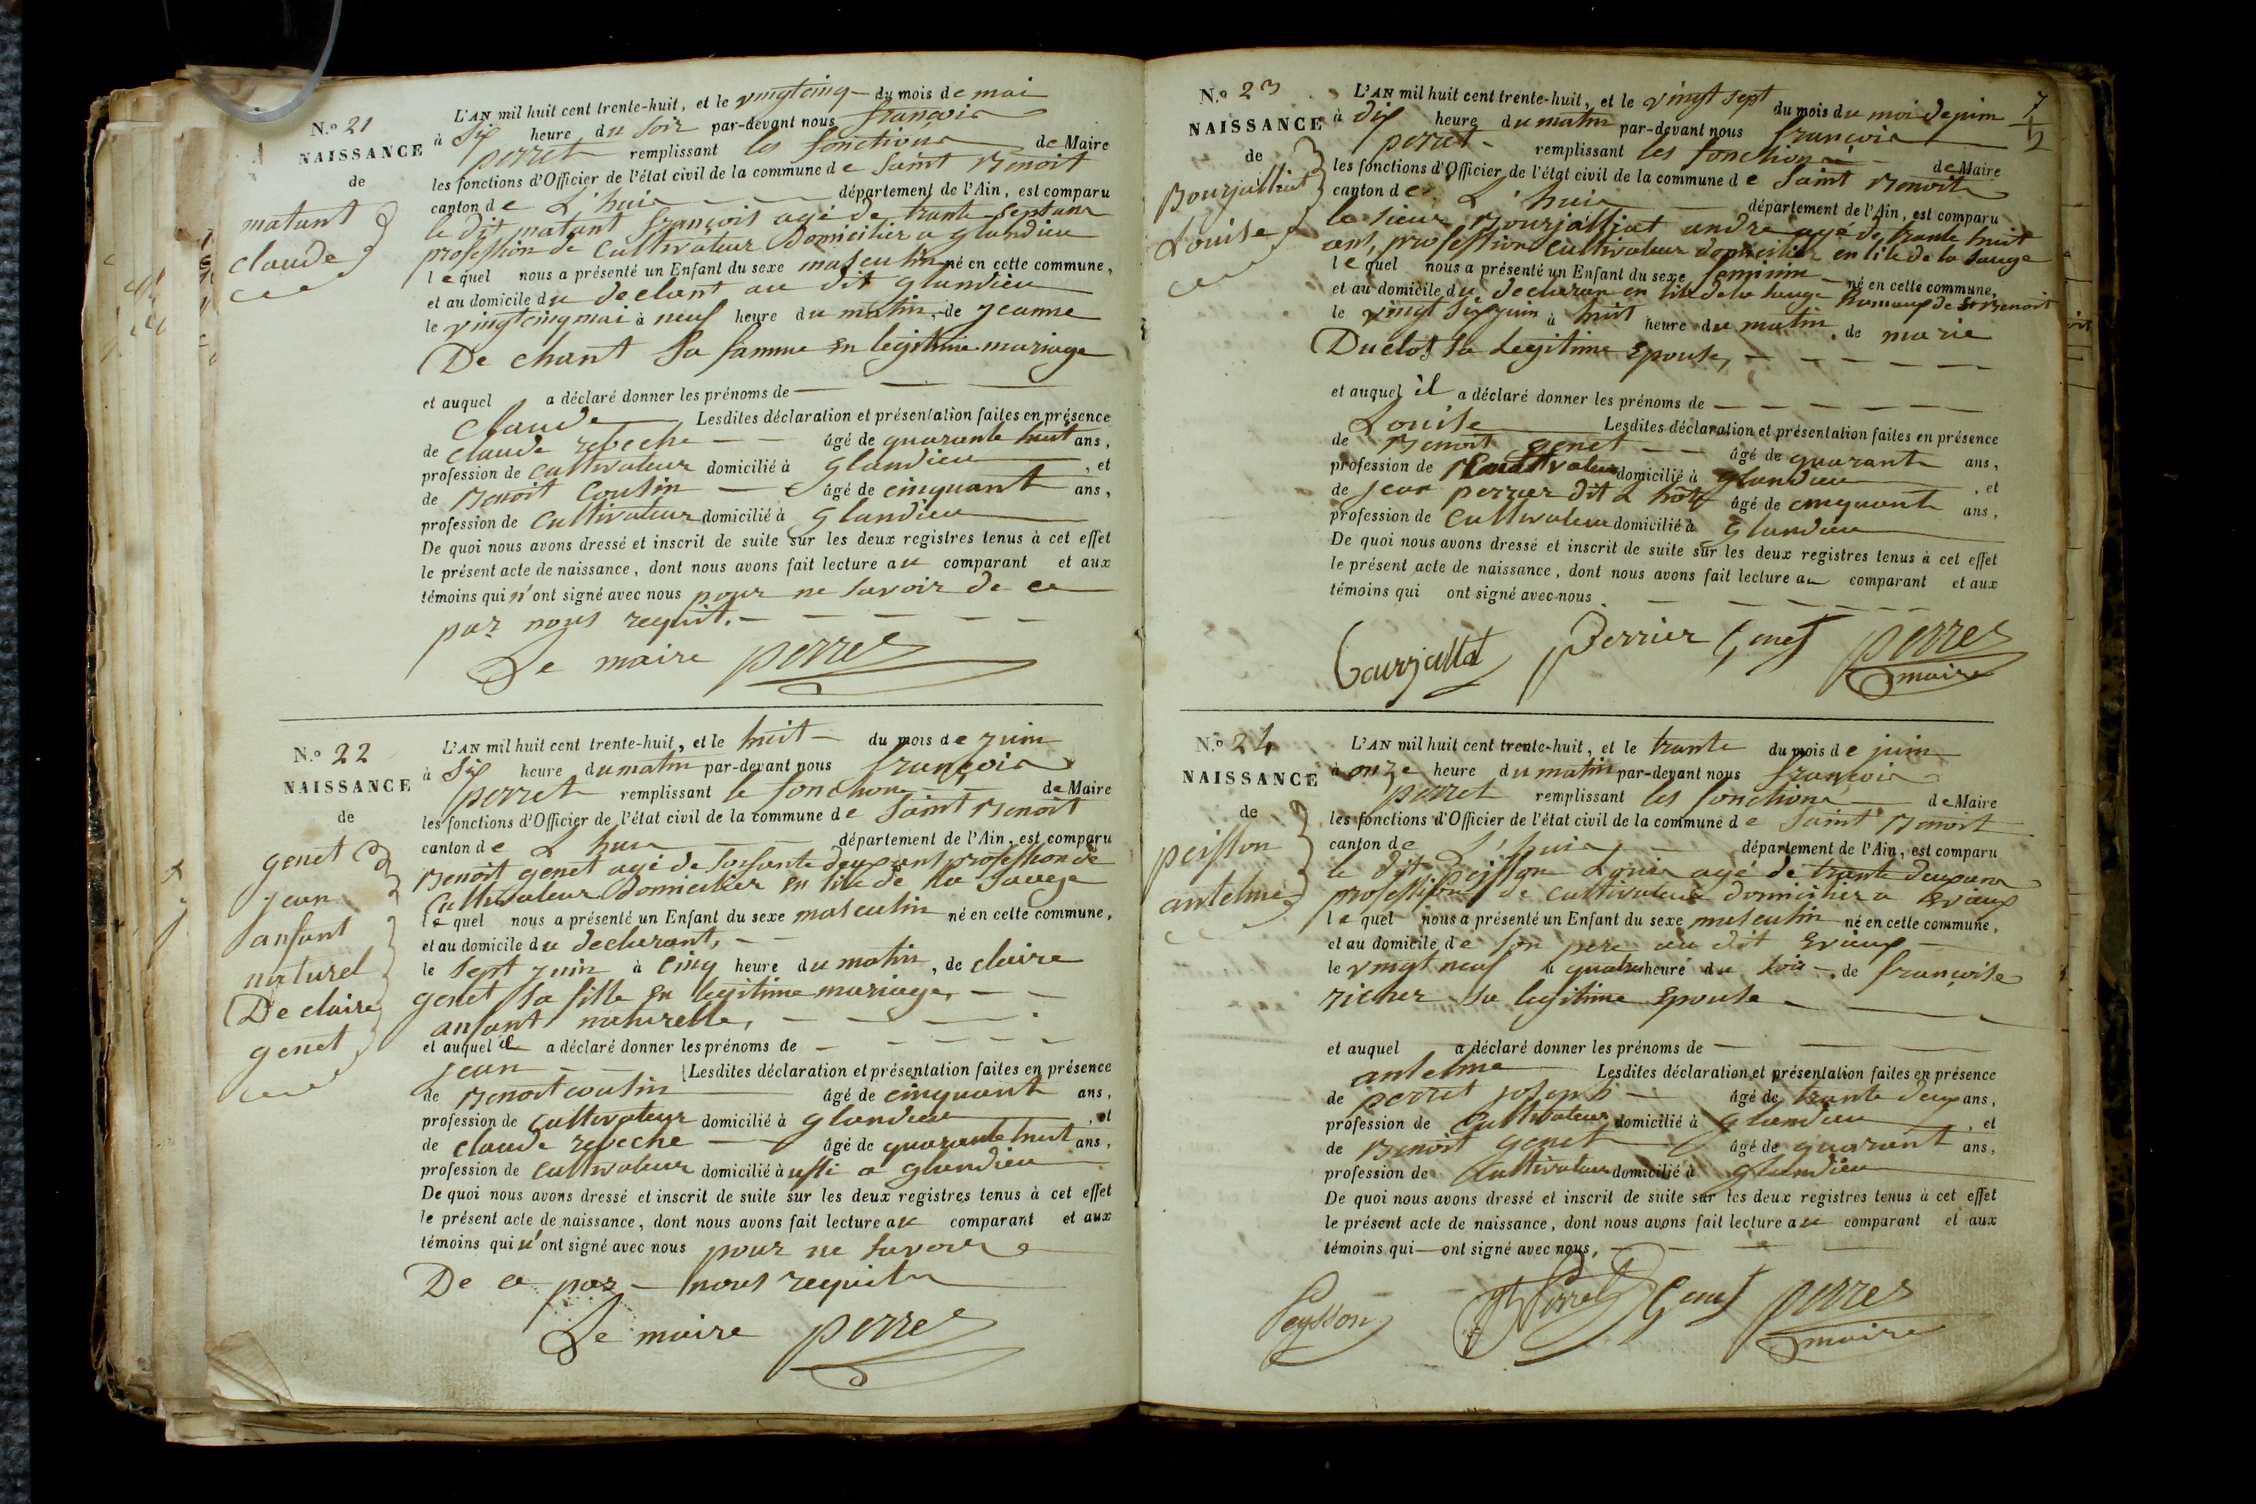 N.o 21
NAISSANCE
de
matant
claude
L'AN mil huit cent trente-huit, et le vingtcinq du mois de mai
à Six heure du soir par-devant nous françois
perret remplissant les fonctions de Maire
les fonctions d'Officier de l'état civil de la commune de Saint Benoit
canton de L'huis département de l'Ain, est comparu
le dit matant françois agé de trante Sept ans
profession de Cultivateur Domicilier a glandieu
lequel nous a présenté un Enfant du sexe masculin né en cette commune,
et au domicile du declant au dit glandieu
le vingtcinq mai à neuf heure du matin, de jeanne
De chant Sa famme En legitime mariage
et auquel a déclaré donner les prénoms de
Claude Lesdites déclaration et présentation faites en présence
de claude reveche âgé de quarante huit ans,
profession de cultivateur domicilié à glandieu, et
de Benoit Cousin âgé de cinquant ans,
profession de cultivateur domicilié à glandieu
De quoi nous avons dressé et inscrit de suite sur les deux registres tenus à cet effet
le présent acte de naissance, dont nous avons fait lecture au comparant et aux
témoins qui n'ont signé avec nous pour ne savoir de ce
par nous requit.
Le maire perret
N.o 22
NAISSANCE
de
genet
jean
anfant
naturel
De claire
genet
L'AN mil huit cent trente-huit, et le huit du mois de juin
à Six heure du matin par-devant nous françois
perret remplissant le fonctions de Maire
les fonctions d'Officier de l'état civil de la commune de Saint Benoit
canton de L'huis département de l'Ain, est comparu
Benoit genet agé de soisante deux ans profession de
Cultivateur Domicilier en lile de la Sauge
lequel nous a présenté un Enfant du sexe masculin né en cette commune,
et au domicile du declarant,
le sept juin à Cinq heure du matin, de claire
genet sa fille en legitime mariage,
anfant naturelle,
et auquel il a déclaré donner les prénoms de
jean Lesdites déclaration et présentation faites en présence
de Benoit cousin âgé de cinquant ans,
profession de cultivateur domicilié à glandieu, et
de claude reveche âgé de quarante huit ans,
profession de cultivateur domicilié à ussi a glandieu
De quoi nous avons dressé et inscrit de suite sur les deux registres tenus à cet effet
le présent acte de naissance, dont nous avons fait lecture au comparant et aux
témoins qui n'ont signé avec nous pour ne savoir
De ce par nous requit
Le maire perret
7
N.o 23
NAISSANCE
de
Bourjalliat
Louise
L'AN mil huit cent trente-huit, et le vingt sept du mois du moi de juin
à dix heure du matin par-devant nous françois
perret remplissant les fonctions de Maire
les fonctions d'Officier de l'état civil de la commune de Saint Benoit
canton de L'huis département de l'Ain, est comparu
le sieur Bourjalliat andré agé de trante huit
ans, profession Cultivateur domicilier en lile de la Sauge
lequel nous a présenté un Enfant du sexe feminin né en cette commune,
et au domicile du declaran en lile de la Sauge hamaux de St Benoit
le vingt Six juin à huit heure du matin, de marie
Duclos sa Legitime Epouse,
et auquel il a déclaré donner les prénoms de
Louise Lesdites déclaration et présentation faites en présence
de Benoit genet âgé de quarante ans,
profession de Cultivateur domicilié à glandieu, et
de jean perrier dit L hôte âgé de cinquant ans,
profession de Cultivateur domicilié à glandieu
De quoi nous avons dressé et inscrit de suite sur les deux registres tenus à cet effet
le présent acte de naissance, dont nous avons fait lecture au comparant et aux
témoins qui ont signé avec nous.
Bourjallat Perrier Genet perret
maire
N.o 24
NAISSANCE
de
peisson
antelme
L'AN mil huit cent trente-huit, et le trante du mois de juin
à onze heure du matin par-devant nous françois
perret remplissant les fonctions de Maire
les fonctions d'Officier de l'état civil de la commune de Saint Benoit
canton de L'huis département de l'Ain, est comparu
le dit peisson Louis agé de trante deux ans
profession de cultivateur domicilier a Evieux
lequel nous a présenté un Enfant du sexe masculin né en cette commune,
et au domicile de son pere au dit Evieux
le vingt neuf à quatre heure du soir, de françoise
richer sa legitime Epouse
et auquel a déclaré donner les prénoms de
antelme Lesdites déclaration et présentation faites en présence
de perret joseph âgé de trante deux ans,
profession de Cultivateur domicilié à glandieu, et
de Benoit genet âgé de quarant ans,
profession de Cultivateur domicilié à glandieu
De quoi nous avons dressé et inscrit de suite sur les deux registres tenus à cet effet
le présent acte de naissance, dont nous avons fait lecture au comparant et aux
témoins qui ont signé avec nous,
Peysson Perret Genet perret
maire